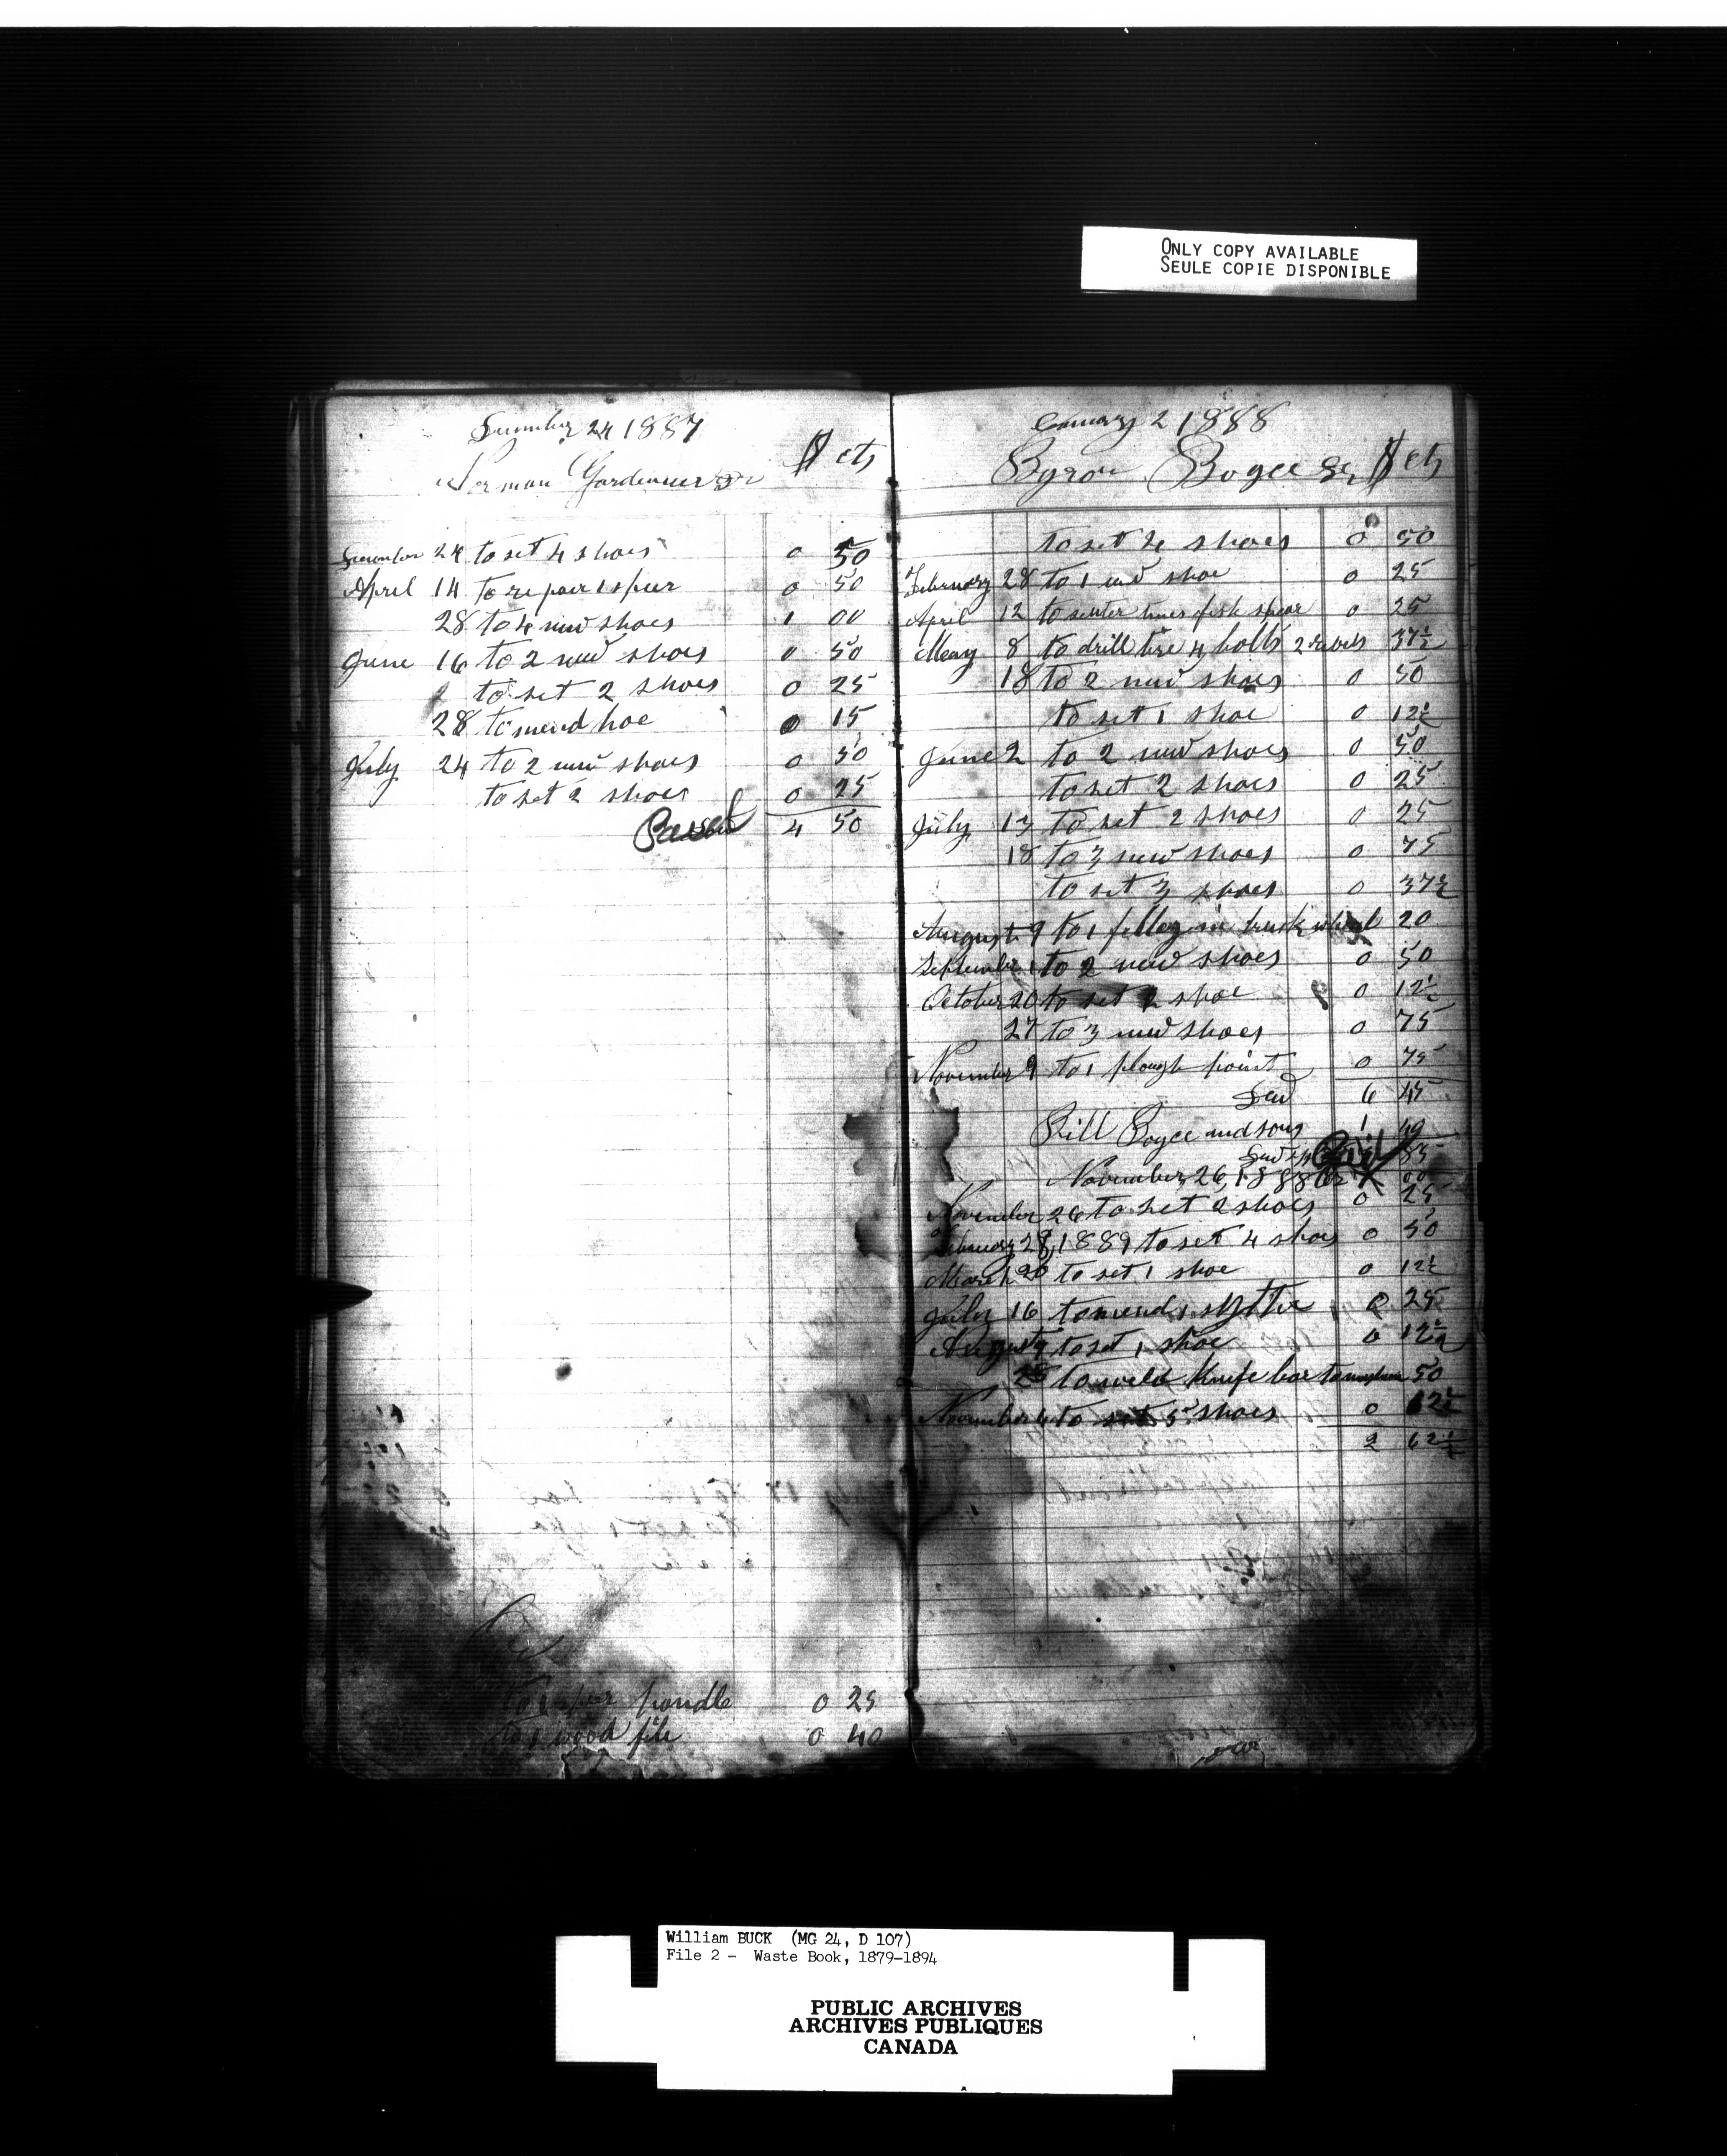 ONLY COPY AVAILABLE
SEULE COPIE DISPONIBLE
December 24 1887
Norman Gardenner Dr $ cts
December 24 to set 4 shoes 0 50
April 14 to repair 1 speer 0 50
28 to 4 new shoes 1 00
June 16 to 2 new shoes 0 50
to set 2 shoes 0 25
28 to mend hoe 0 15
July 24 to 2 new shoes 0 50
to set 2 shoes 0 25
4 50
to 1 speer handle 0 25
to 1 wood file 0 40
January 2 1888
Byron Boyce Dr $ cts
to set 4 shoes 0 50
February 28 to 1 new shoe 0 25
April 12 to senter tines fish spear 0 25
Meay 8 to drill tire 4 bolts 2 rivets 37½
18 to 2 new shoes 0 50
to set 1 shoe 0 12½
June 2 to 2 new shoes 0 50
to set 2 shoes 0 25
July 13 to set 2 shoes 0 25
18 to 3 new shoes 0 75
to set 3 shoes 0 37½
August 9 to 1 felloy in truck wheel 20
September 1 to 2 new shoes 0 50
October 20 to set shoe 0 12½
27 to 3 new shoes 0 75
November 9 to 1 plough point 0 75
Dew 6 45
Bill Boyce and sons 1 40
Dew Paid 85
November 26, 1888
November 26 to set 2 shoes 0 25
February 28, 1889 to set 4 shoes 0 50
March 20 to set 1 shoe 0 12½
July 16 to mend 1 sythe 0 25
August 9 to set 1 shoe 0 12½
28 to weld Knife bar 50
November 4 to set 5 shoes 0 62½
2 62½
William BUCK (MG 24, D 107)
File 2 - Waste Book, 1879-1894
PUBLIC ARCHIVES
ARCHIVES PUBLIQUES
CANADA